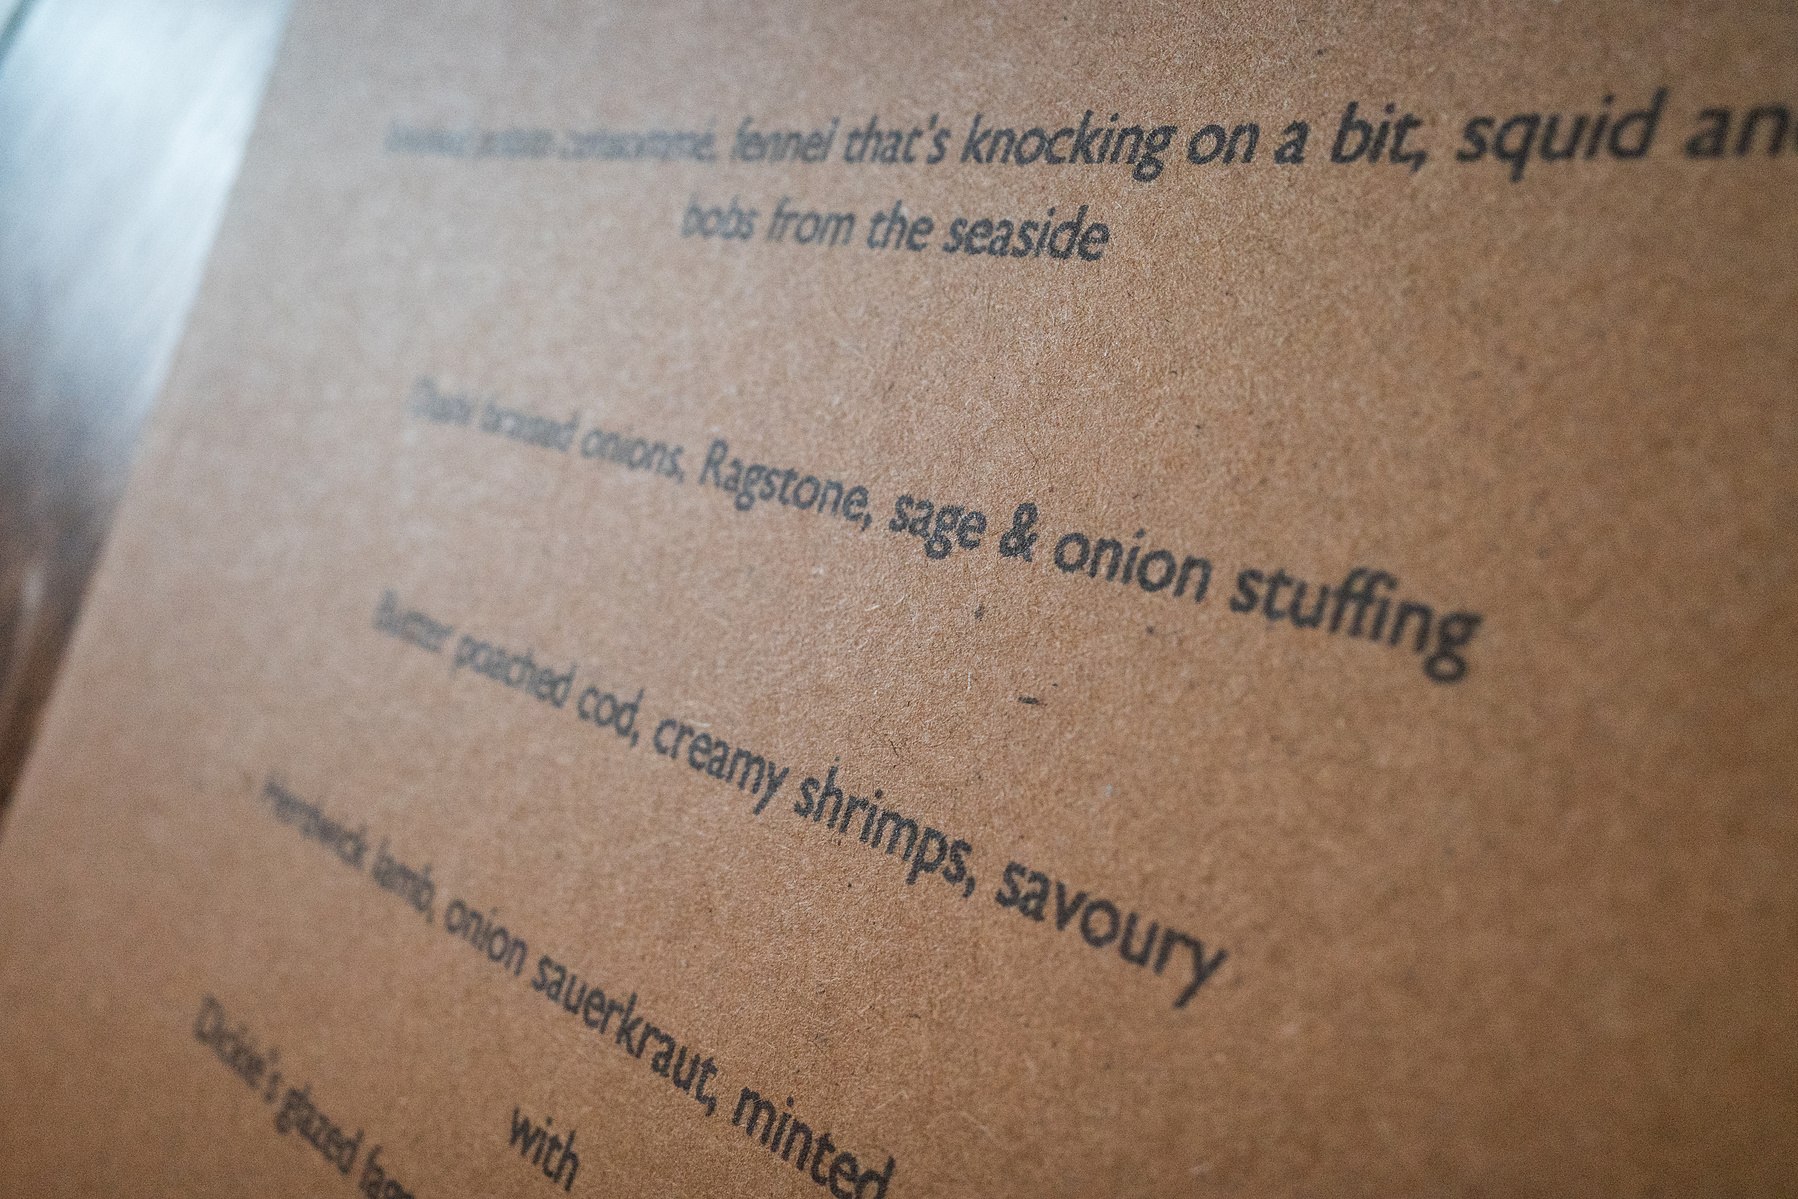 consommé, fennel that's knocking on a bit, squid and
bobs from the seaside
Dashi braised onions, Ragstone, sage & onion stuffing
Butter poached cod, creamy shrimps, savoury
Herdwick lamb, onion sauerkraut, minted
with
Dickie's glazed